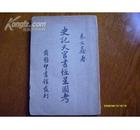 朱文鑫著
史記天官書恒星圖考
商務印書館發行